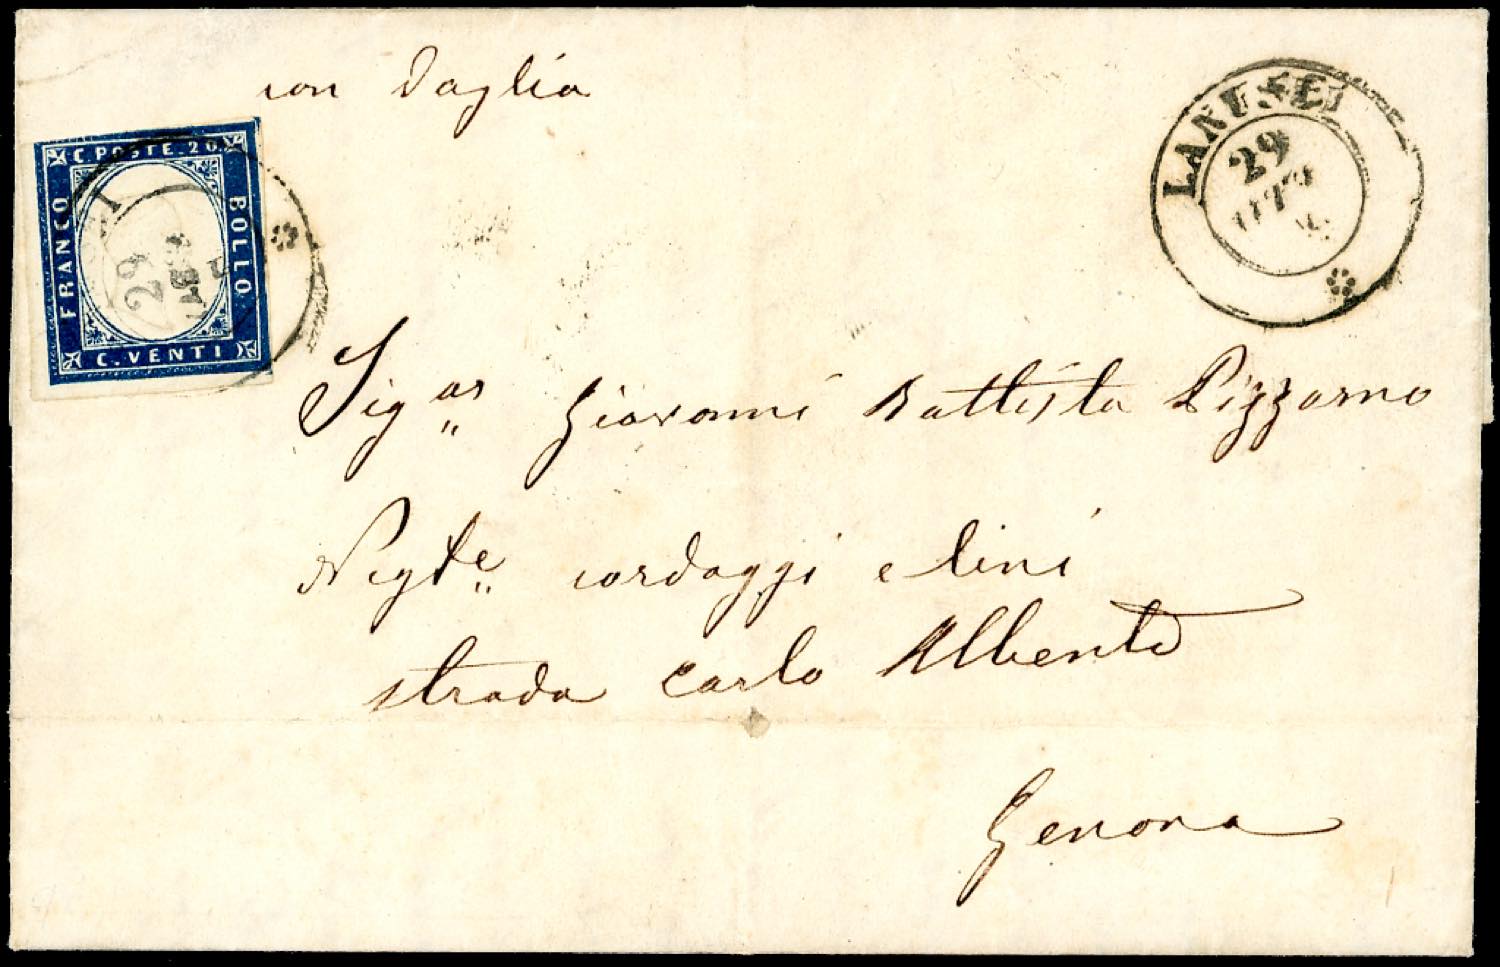 con Vaglia
C. POSTE. 20.
FRANCO
BOLLO
C. VENTI
29
LANUSEI
29
OTT
Sig.or Giovanni Battista Pizzorno
Negte. cordaggi e lini
strada Carlo Alberto
Genova